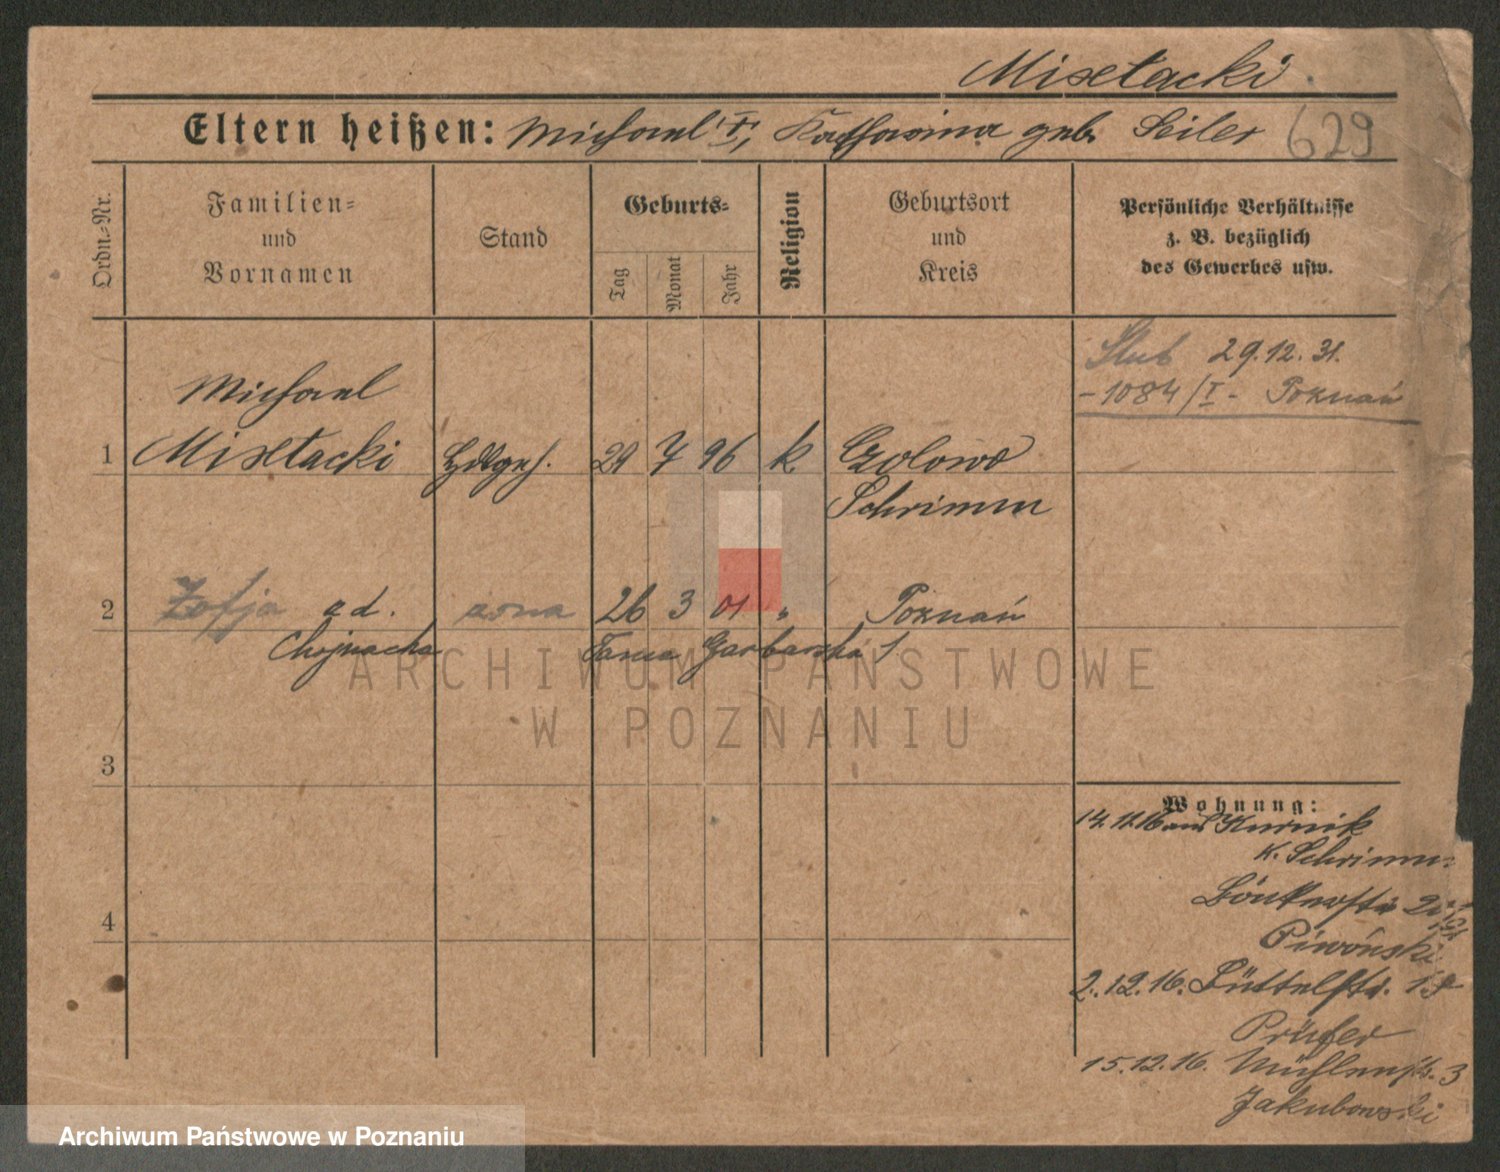 Misełacki
Eltern heißen: Michael I, Katharina geb. Seiler 629
Ordn.-Nr.
Familien- und Vornamen
Stand
Geburts-
Tag Monat Jahr
Religion
Geburtsort und Kreis
Persönliche Verhältnisse z. B. bezüglich des Gewerbes usw.
Ślub 29.12.31.
-1084/I- Poznań
Michael
1 Misełacki Hdlgeh. 29 7 96 k Czolowo
Schrimm
2 Zofja ad. żona 26 3 01 " Poznań
Chojnacka Tama Garbarska 1
3
4
Wohnung:
14.11.16 aus Kurnik
K. Schrimm
Piwonski
2.12.16. Büttelstr. 18
Prüfer
15.12.16. Mühlenstr. 3
Jakubowski
ARCHIWUM PAŃSTWOWE
W POZNANIU
Archiwum Państwowe w Poznaniu